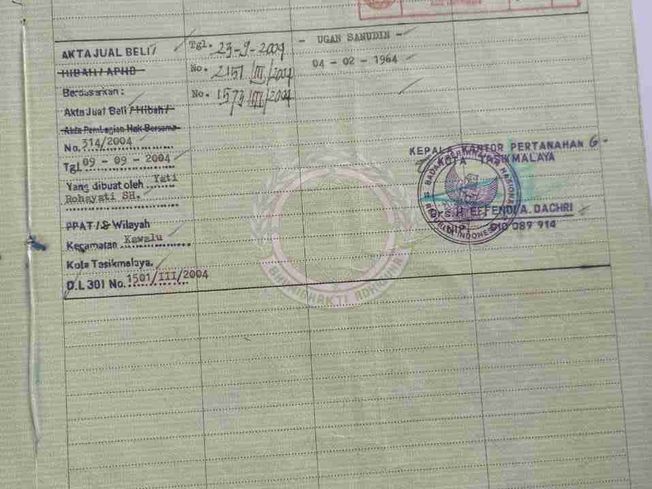 AKTA JUAL BELI / Tgl. 23-9-2004 - UGAN SANUDIN -
HIBAH / APHB No. 2151/III/2004 04 - 02 - 1964
Berdasarkan : No. 1573/III/2004
Akta Jual Beli / Hibah /
Akta Pembagian Hak Bersama
No. 314/2004
Tgl 09 - 09 - 2004
Yang dibuat oleh Yati
Rohayati SH.
PPAT / S Wilayah
Kecamatan Kawalu
Kota Tasikmalaya.
D.I. 301 No. 1501/III/2004
KEPALA KANTOR PERTANAHAN
KOTA TASIKMALAYA
BADAN PERTANAHAN NASIONAL
REPUBLIK INDONESIA
Drs. H. EFFENDI A. DACHRI
NIP. 010 089 914
BHUMI BHAKTI ADHIGUNA